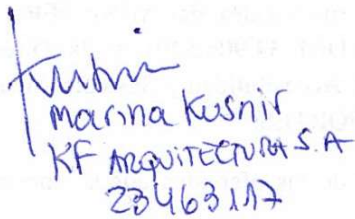 Marina Kusnir
KF ARQUITECTURA S.A
23463117